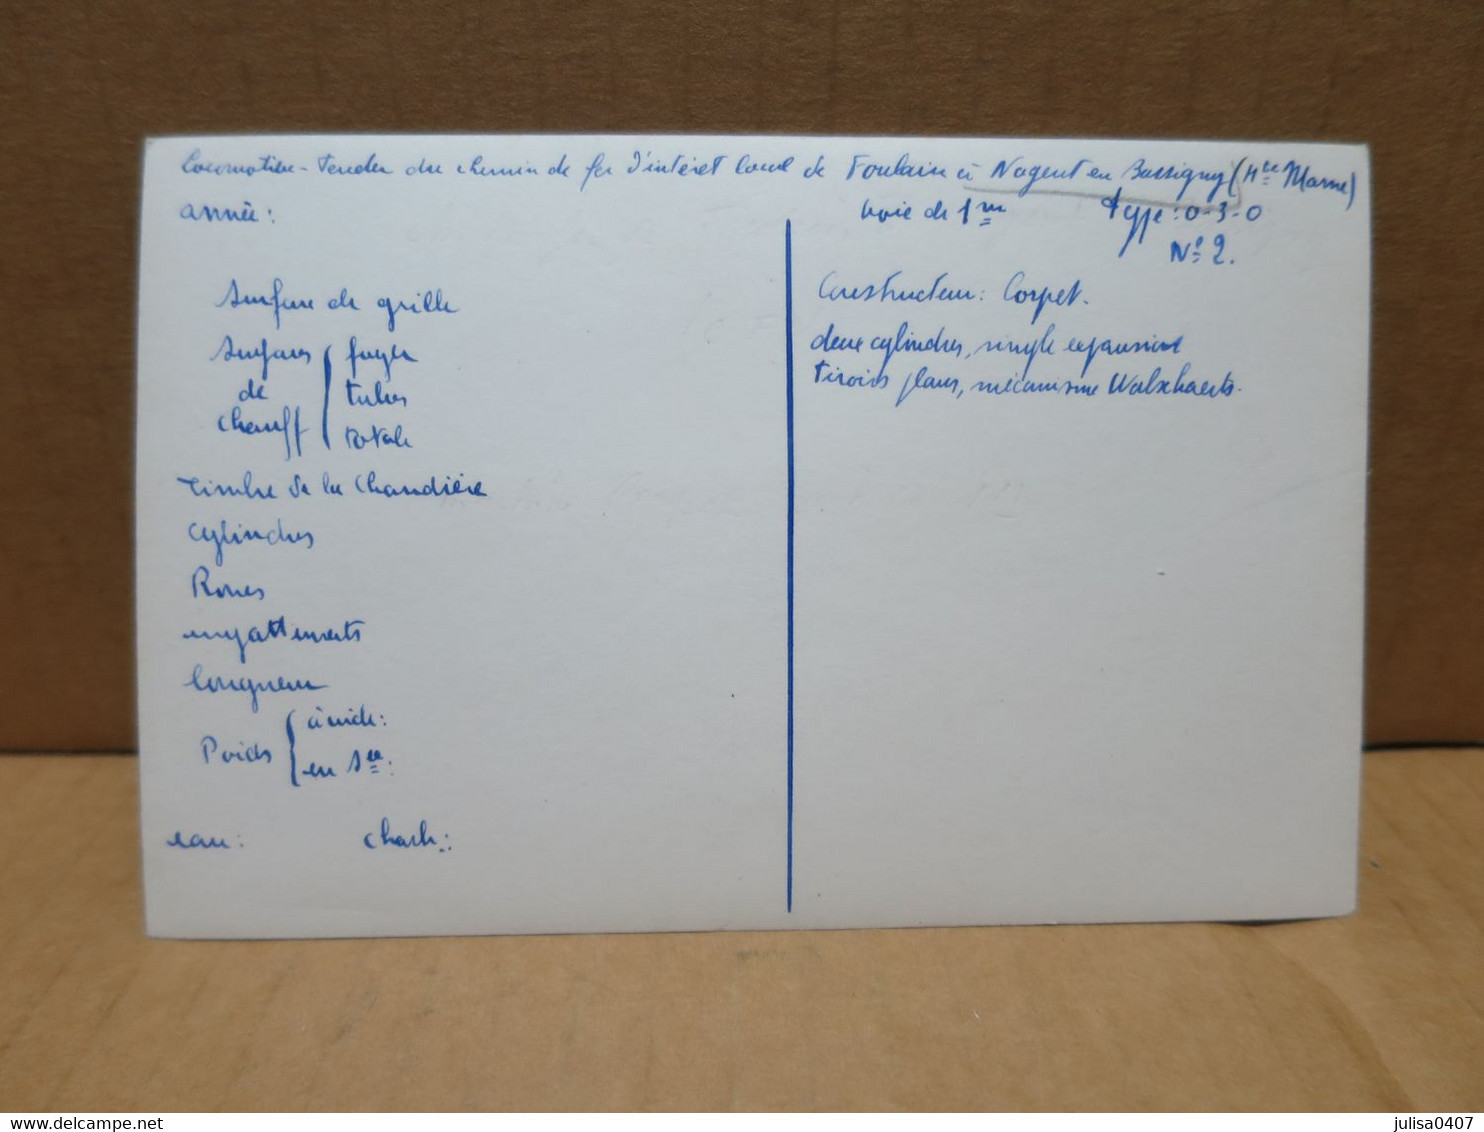 Locomotive-Tender du chemin de fer d'intérêt local de Foulain à Nogent en Bassigny (Hte Marne)
année:
voie de 1m type: 0-3-0
No 2.
Surface de grille
Surfaces de chauff
foyer
tubes
totale
Timbre de la Chaudière
Cylindres
Roues
empattements
longueur
Poids
à vide:
en sce:
eau: charb:
Constructeur: Corpet.
deux cylindres, simple expansion
tiroirs plans, mécanisme Walschaerts.
delcampe.net
julisa0407